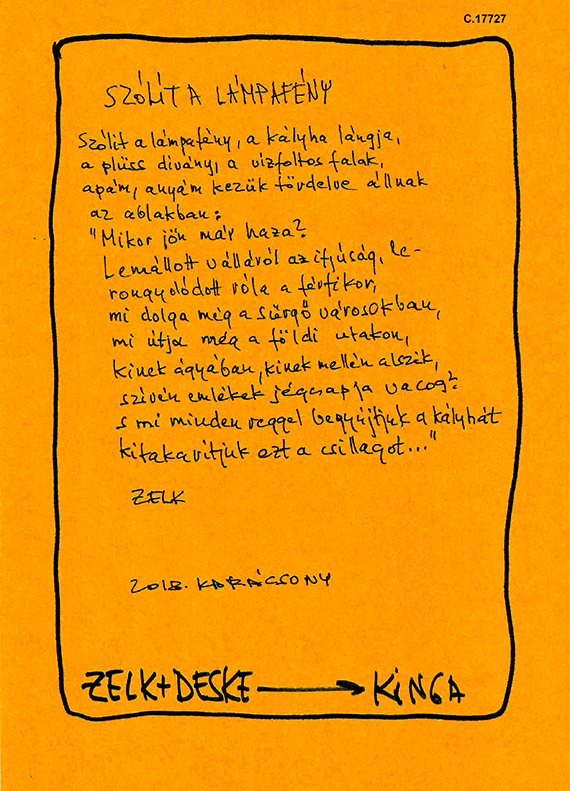 C.17727
SZÓLÍT A LÁMPAFÉNY
Szólit a lámpafény, a kályha lángja,
a plüss divány, a vizfoltos falak,
apám, anyám kezük tördelve állnak
az ablakban:
"Mikor jön már haza?
Lemállott válláról az ifjúság, le-
rongyolódott róla a férfikor,
mi dolga még a sürgő városokban,
mi útja még a földi utakon,
kinek ágyában, kinek mellén alszik,
szivén emlékek jégcsapja vacog?
s mi minden reggel begyújtjuk a kályhát
kitakarítjuk ezt a csillagot..."
ZELK
2018. KARÁCSONY
ZELK+DESKE → KINGA